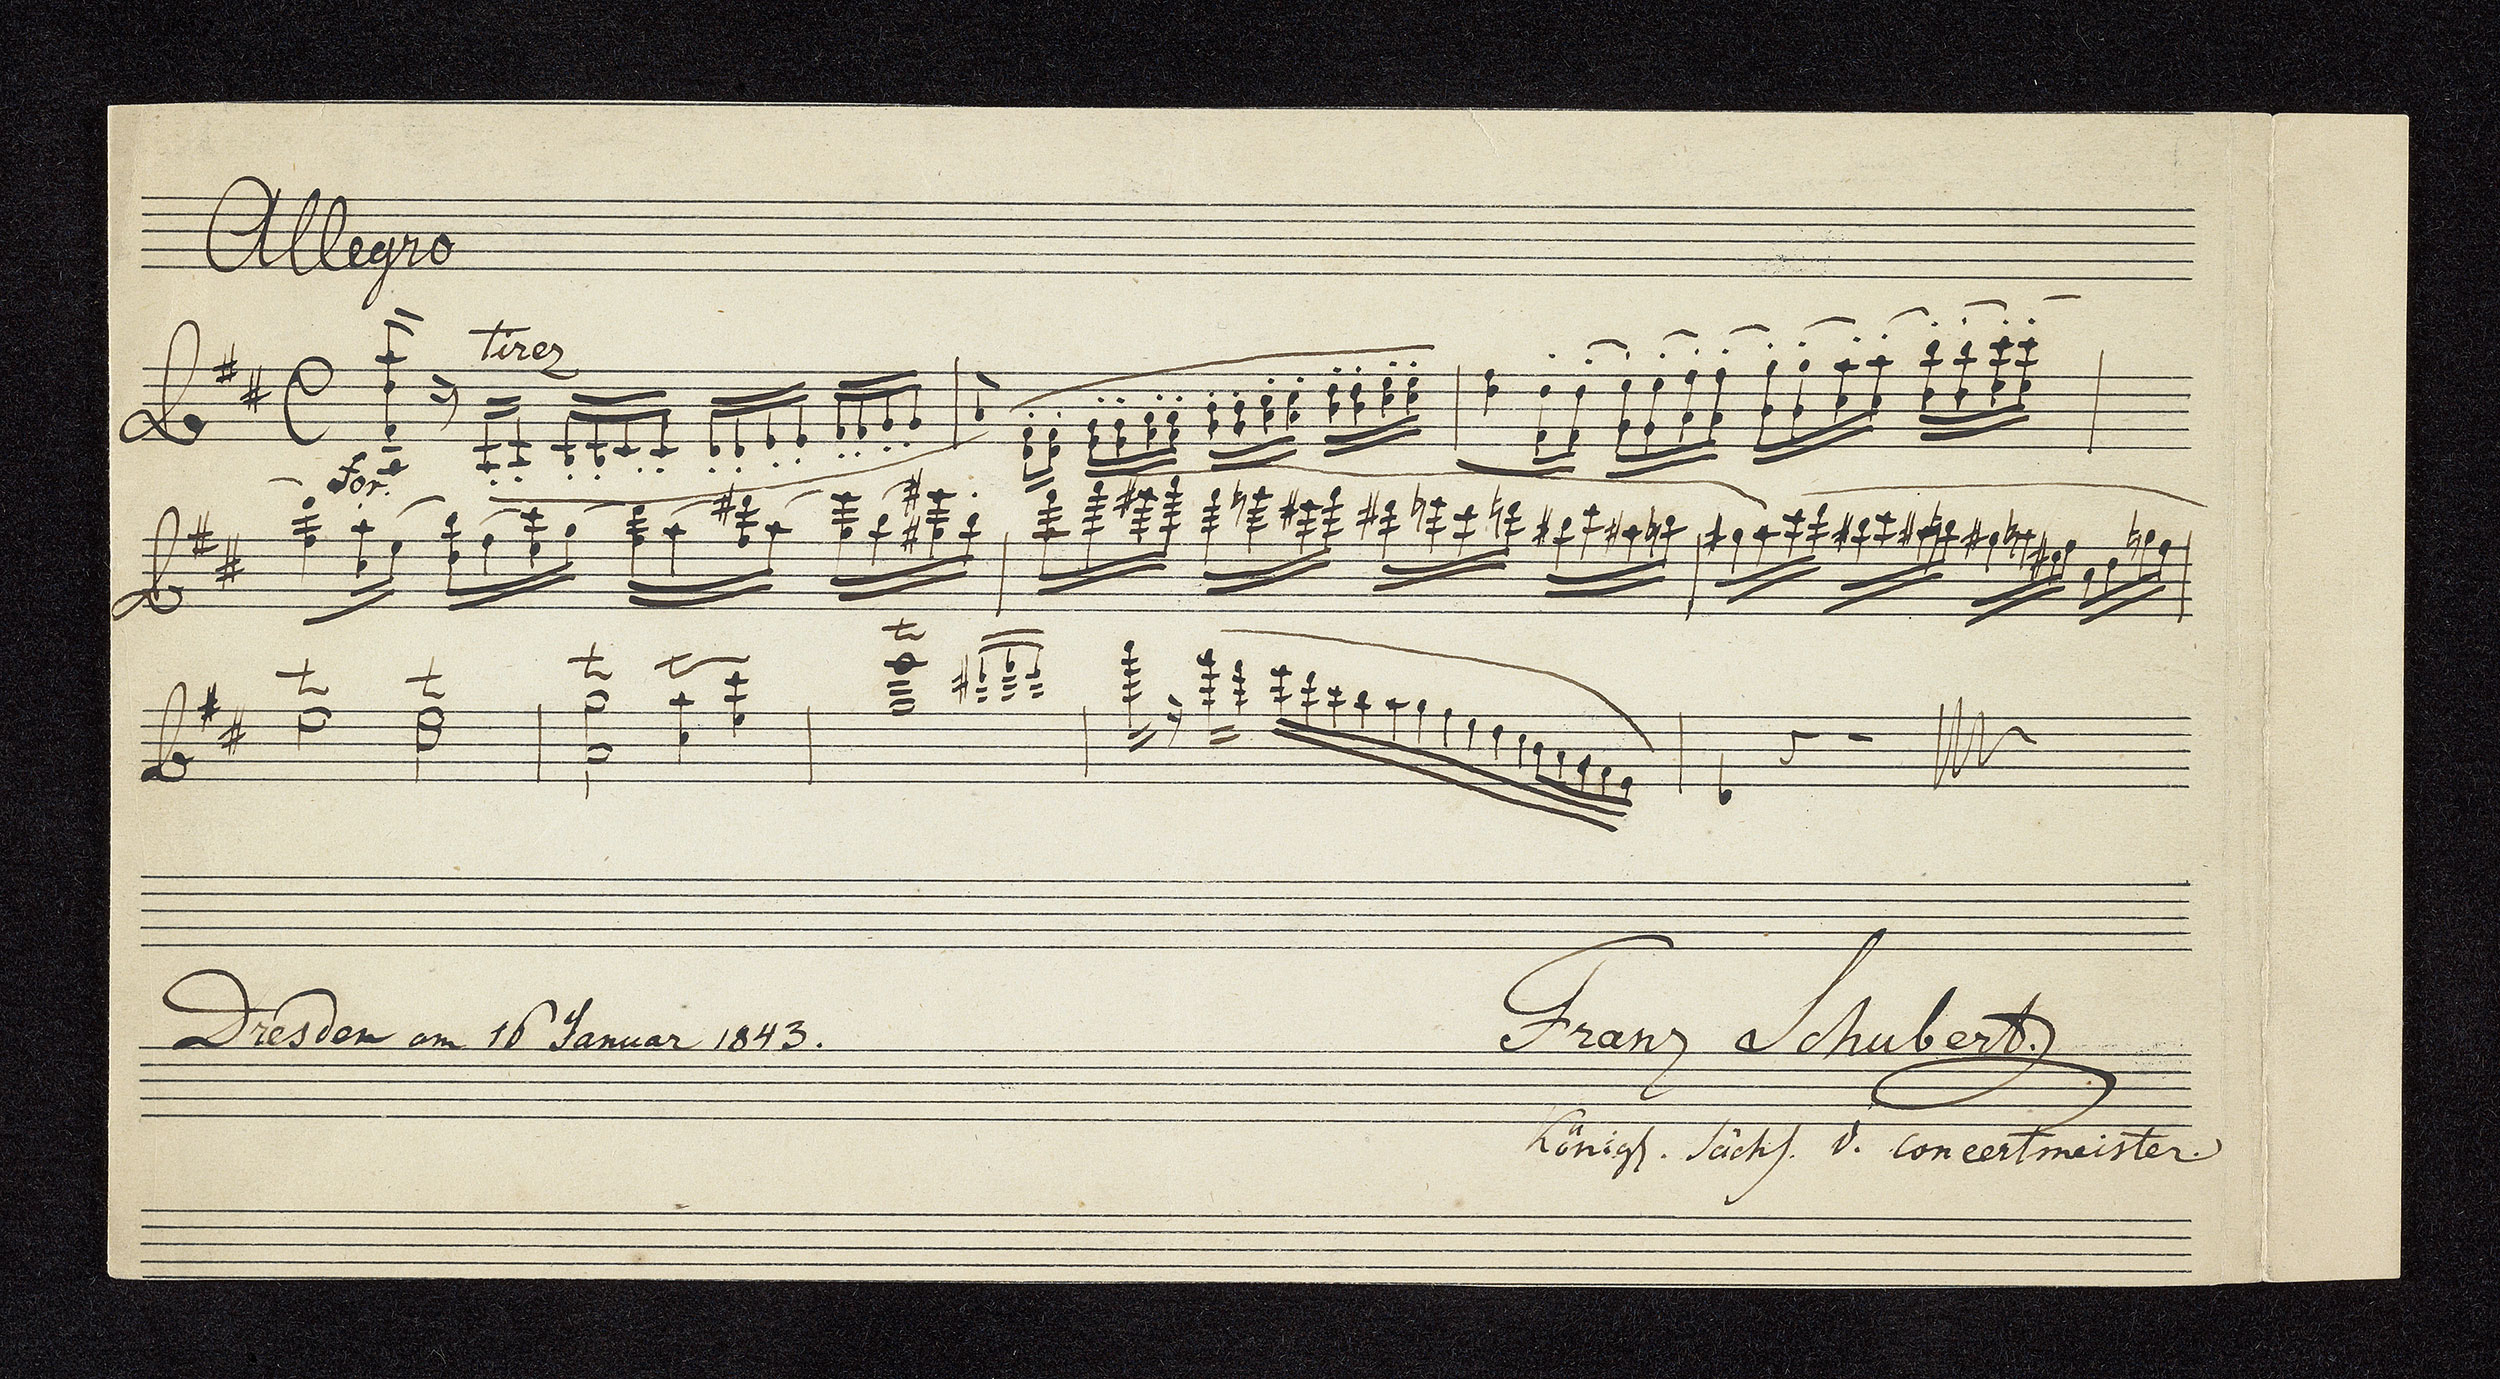 Allegro
tirez
for.
Dresden am 16 Januar 1843.
Franz Schubert.
Königl. Sächs. V. Concertmeister.